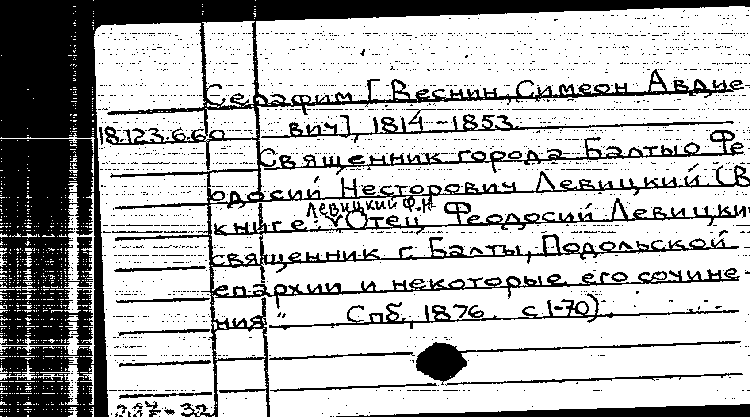 Серафим [Веснин, Симеон Авдие
18.123.6.60 вич], 1814-1853.
Священник города Балтыо Фе
одосий Несторович Левицкий (В
Левицкий Ф.Н
книге: "Отец Феодосий Левицкий
священник г. Балты, Подольской
епархии и некоторые его сочине-
ния". Спб., 1876. с 1-70).
227-32